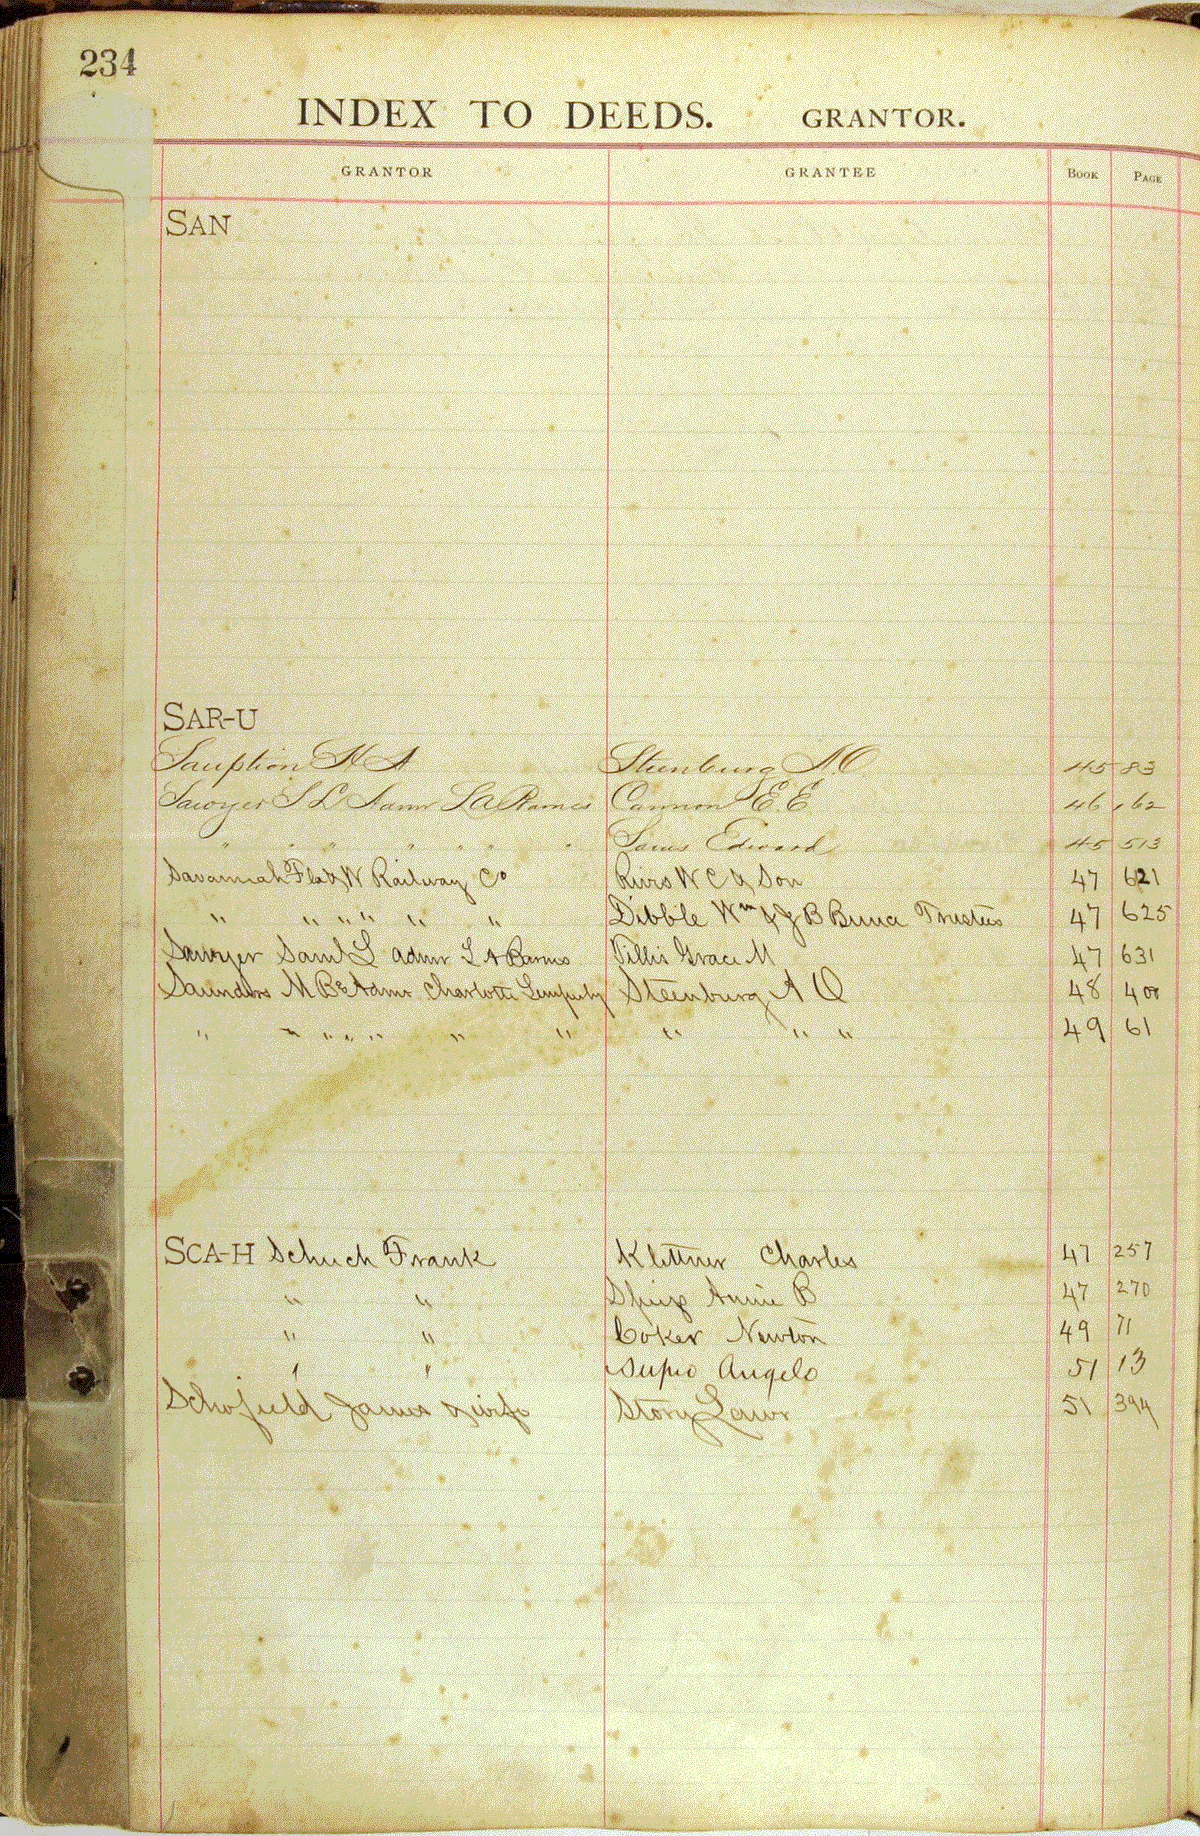 234
INDEX TO DEEDS. GRANTOR.
GRANTOR GRANTEE BOOK PAGE
SAN
SAR-U
H A Steenburg A.O. 45 83
Sawyer S L Admr L A Barnes Cannon E.E. 46 162
" " " " " " " Edward 45 513
Savannah Fla & W Railway Co W C & Son 47 621
" " " " " " Dibble Wm & J B Trustees 47 625
Sawyer Saml L admr L A Barnes Grace M 47 631
Saunders M B & Admr Charlotte Steenburg A O 48 400
" " " " " " " " " " 49 61
SCA-H Schuch Frank Klettner Charles 47 257
" " Annie B 47 270
" " Coker Newton 49 71
" " Angelo 51 13
Schofield James & wife Story 51 394